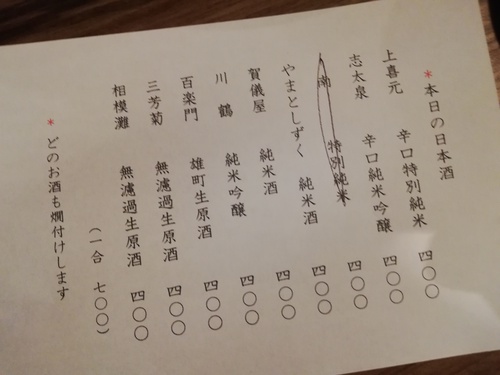 *本日の日本酒
上喜元 辛口特別純米 四〇〇
志太泉 辛口純米吟醸 四〇〇
南 特別純米 四〇〇
やまとしずく 純米酒 四〇〇
賀儀屋 純米酒 四〇〇
川鶴 純米吟醸 四〇〇
百楽門 雄町生原酒 四〇〇
三芳菊 無濾過生原酒 四〇〇
相模灘 無濾過生原酒 四〇〇
(一合 七〇〇)
*どのお酒も燗付けします